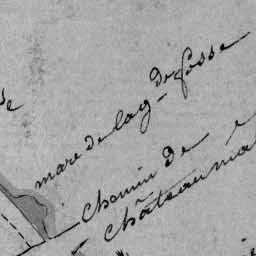 mare de lag-
de fosse
Chemin de
Châteauma